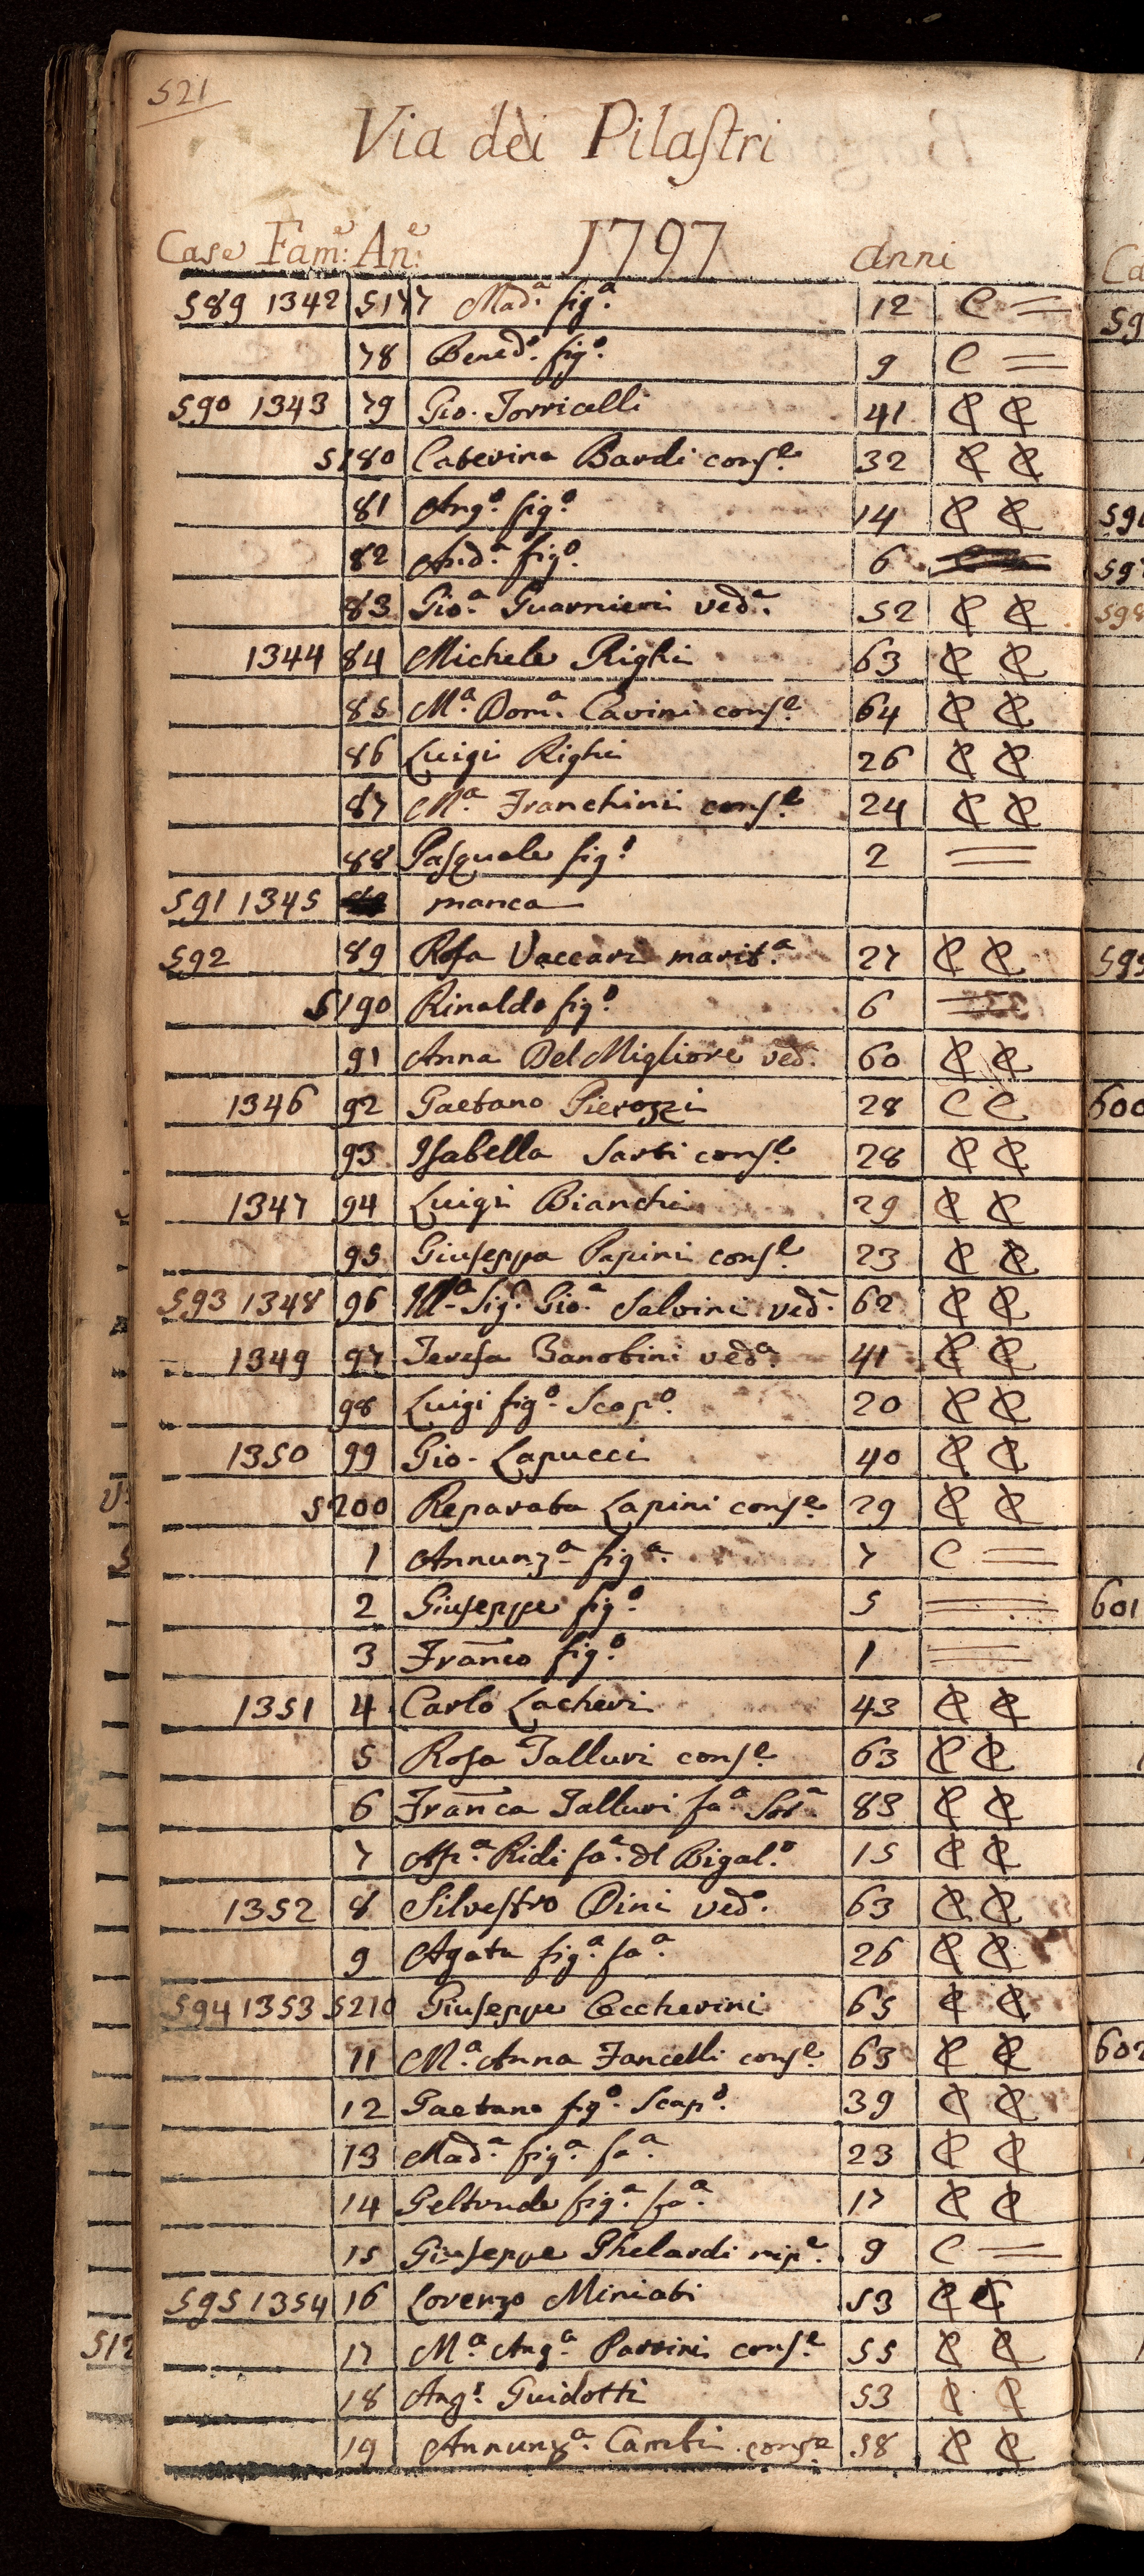 521
Via dei Pilastri
Case Fam.e An.e 1797 Anni
589 1342 5177 Mad.a fig.a 12 C =
78 Bened.o fig.o 9 C =
590 1343 79 Gio. Torricelli 41 C C
5180 Caterina Bardi cons.e 32 C C
81 Ang.o fig.o 14 C C
82 And.a fig.o 6
83 Gio.a Guarnieri ved.a 52 C C
1344 84 Michele Righi 63 C C
85 M.a Dom.a Cavini cons.e 64 C C
86 Luigi Righi 26 C C
87 M.a Franchini cons.e 24 C C
88 Pasquale fig.o 2 =
591 1345 manca
592 89 Rosa Vaccari marit.a 27 C C
5190 Rinaldo fig.o 6 =
91 Anna Del Migliore ved. 60 C C
1346 92 Gaetano Pierozzi 28 C C
93 Isabella Sarti cons.e 28 C C
1347 94 Luigi Bianchi 29 C C
95 Giuseppa Papini cons.e 23 C C
593 1348 96 Ill.a Sig.a Gio.a Salvini ved. 62 C C
1349 97 Teresa Banobini ved.a 41 C C
98 Luigi fig.o Scap.o 20 C C
1350 99 Gio. Lapucci 40 C C
5200 Reparata Lapini cons.e 29 C C
1 Annunz.a fig.a 7 C =
2 Giuseppe fig.o 5 =
3 Franco fig.o 1 =
1351 4 Carlo Lacheri 43 C C
5 Rosa Talluri cons.e 63 C C
6 Franca Talluri fa.a Sor.a 83 C C
7 Ass.a Ridi fa.a dl Bigal.o 15 C C
1352 8 Silvestro Dini ved.o 63 C C
9 Agata fig.a fa.a 26 C C
594 1353 5210 Giuseppe Ceccherini 65 C C
11 M.a Anna Fancelli cons.e 63 C C
12 Gaetano fig.o Scap.o 39 C C
13 Mad.a fig.a fa.a 23 C C
14 Geltrude fig.a fa.a 17 C C
15 Giuseppe Ghelardi nip.e 9 C =
595 1354 16 Lorenzo Miniati 53 C C
17 M.a Ang.a Parrini cons.e 55 C C
18 Ang.o Guidotti 53 C C
19 Annunz.a Cambi cons.e 58 C C